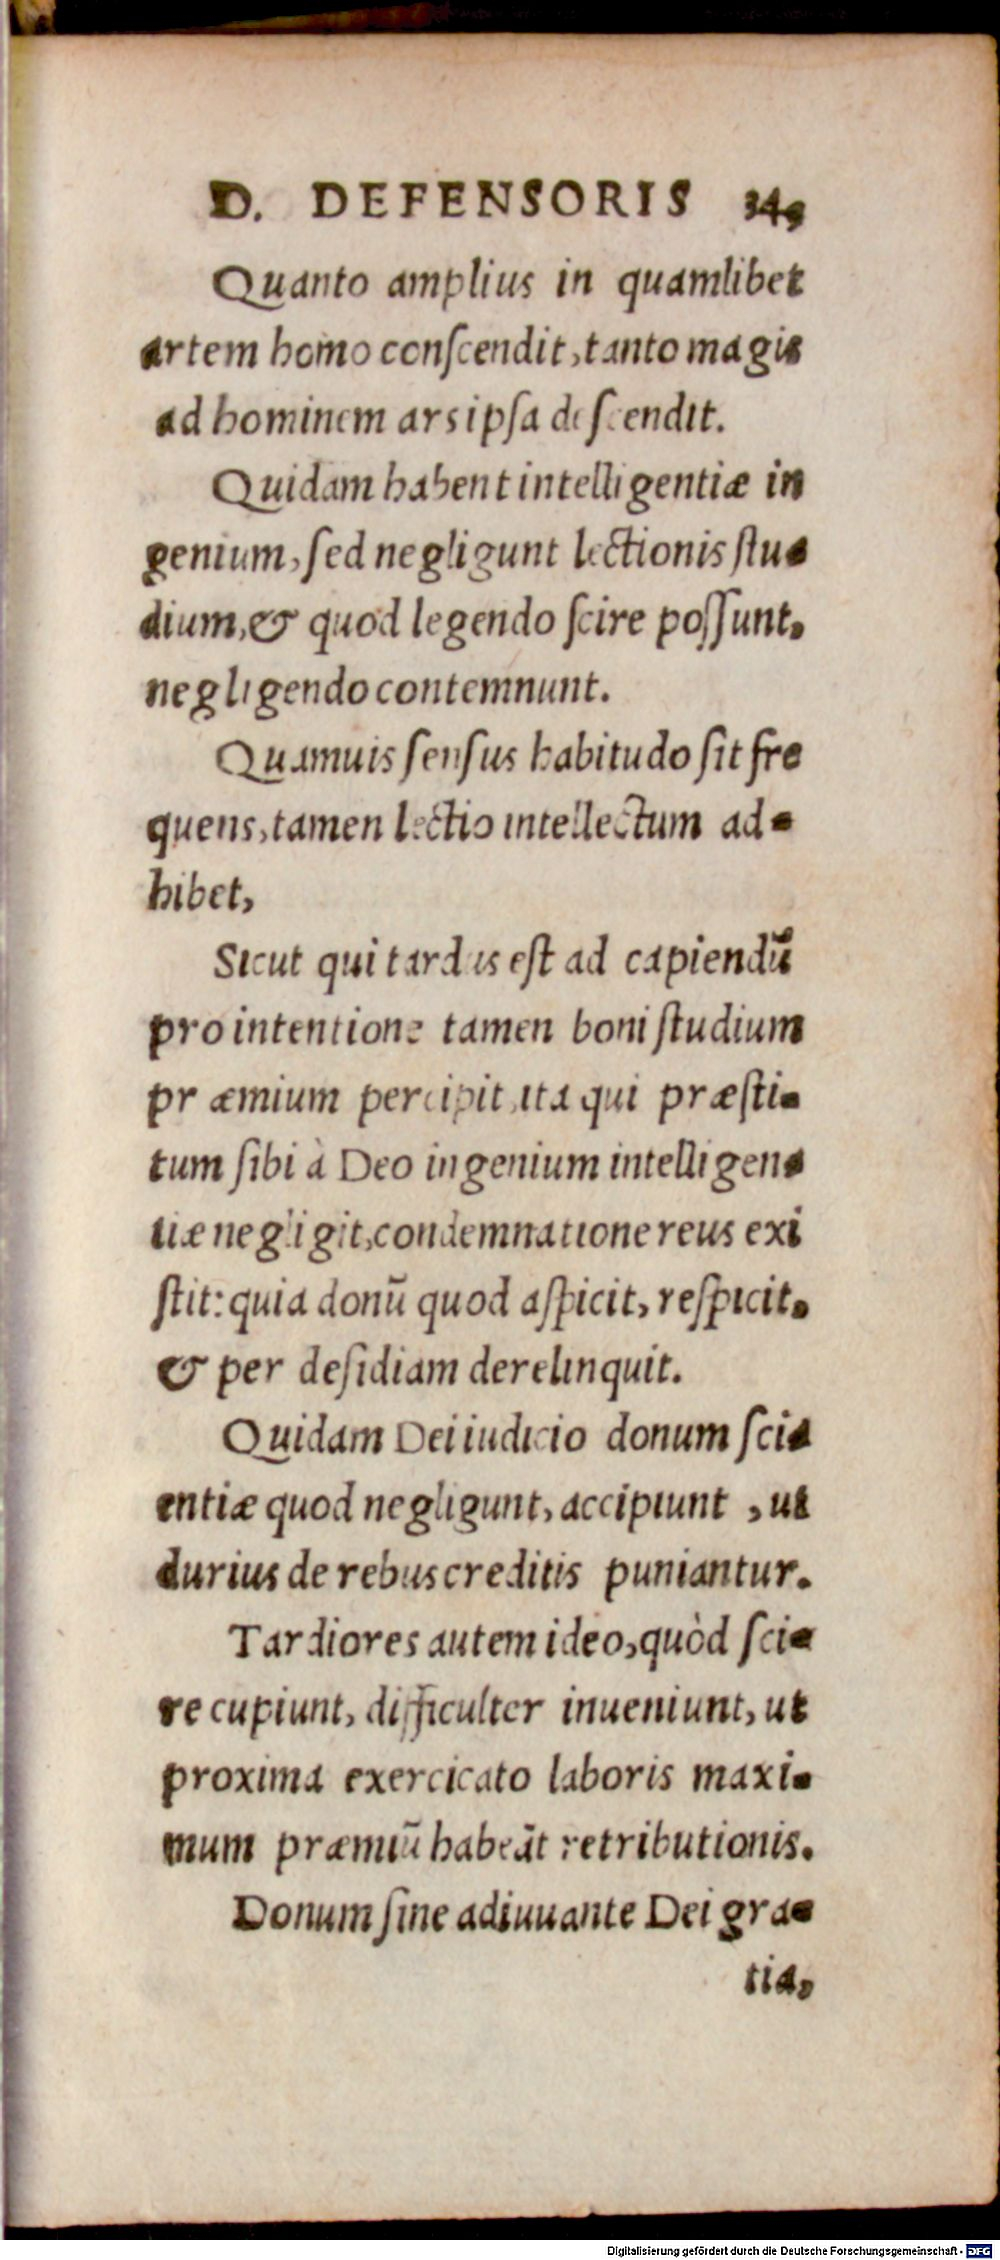 D. DEFENSORIS 349
Quanto amplius in quamlibet
artem homo conſcendit, tanto magis
ad hominem ars ipſa deſcendit.
Quidam habent intelligentiæ in
genium, ſed negligunt lectionis ſtu-
dium, & quod legendo ſcire poſſunt,
negligendo contemnunt.
Quamuis ſenſus habitudo ſit fre
quens, tamen lectio intellectum ad-
hibet,
Sicut qui tardus eſt ad capiendū
pro intentione tamen boni ſtudium
præmium percipit, ita qui præſti-
tum ſibi à Deo ingenium intelligen-
tiæ negligit, condemnatione reus exi
ſtit: quia donū quod aſpicit, reſpicit,
& per deſidiam derelinquit.
Quidam Dei iudicio donum ſci-
entiæ quod negligunt, accipiunt , ut
durius de rebus creditis puniantur.
Tardiores autem ideo, quòd ſci-
re cupiunt, difficulter inueniunt, ut
proxima exercicato laboris maxi-
mum præmiū habeāt retributionis.
Donum ſine adiuuante Dei gra-
tia,
Digitalisierung gefördert durch die Deutsche Forschungsgemeinschaft - DFG